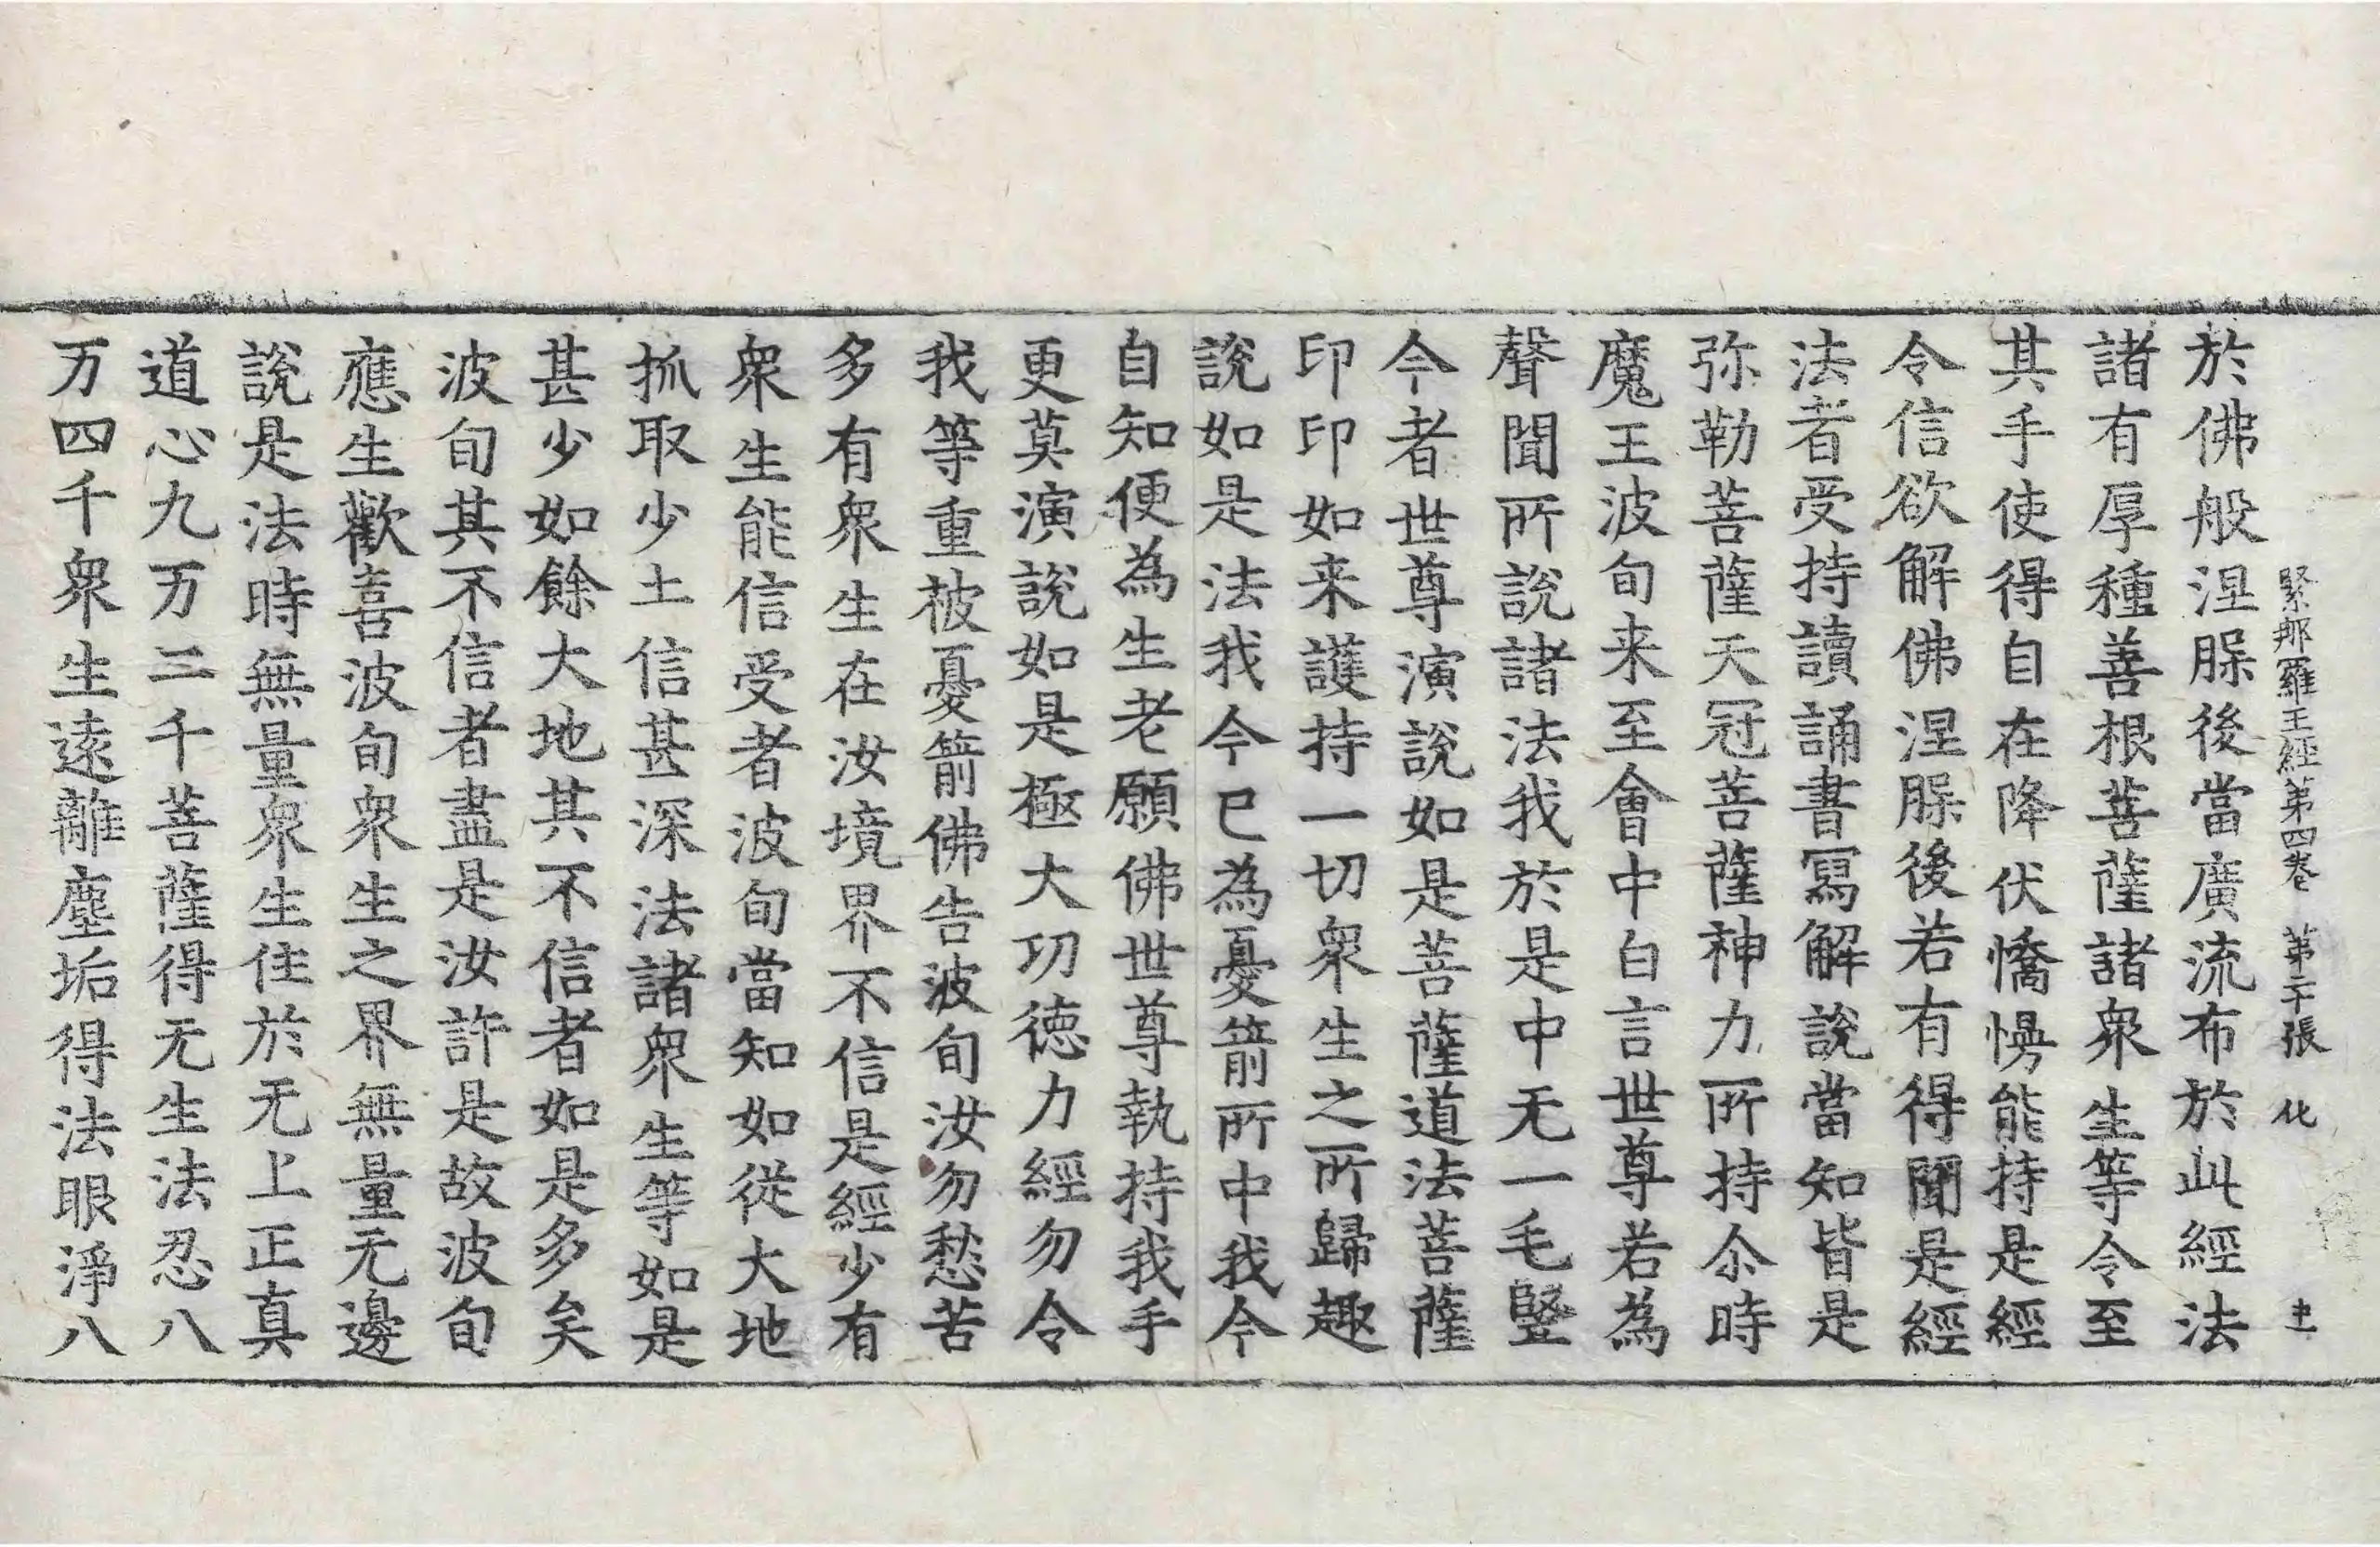 緊那羅王經第四卷 第二十張 化
於佛般涅槃後當廣流布於此經法
諸有厚種善根菩薩諸衆生等令至
其手使得自在降伏憍慢能持是經
令信欲解佛涅槃後若有得聞是經
法者受持讀誦書寫解說當知皆是
弥勒菩薩天冠菩薩神力所持尒時
魔王波旬来至會中白言世尊若為
聲聞所說諸法我於是中无一毛竪
今者世尊演說如是菩薩道法菩薩
印印如来護持一切衆生之所歸趣
說如是法我今已為憂箭所中我今
自知便為生老願佛世尊執持我手
更莫演說如是極大功德力經勿令
我等重被憂箭佛告波旬汝勿愁苦
多有衆生在汝境界不信是經少有
衆生能信受者波旬當知如從大地
抓取少土信甚深法諸衆生等如是
甚少如餘大地其不信者如是多矣
波旬其不信者盡是汝許是故波旬
應生歡喜波旬衆生之界無量无邊
說是法時無量衆生住於无上正真
道心九万二千菩薩得无生法忍八
万四千衆生遠離塵垢得法眼淨八